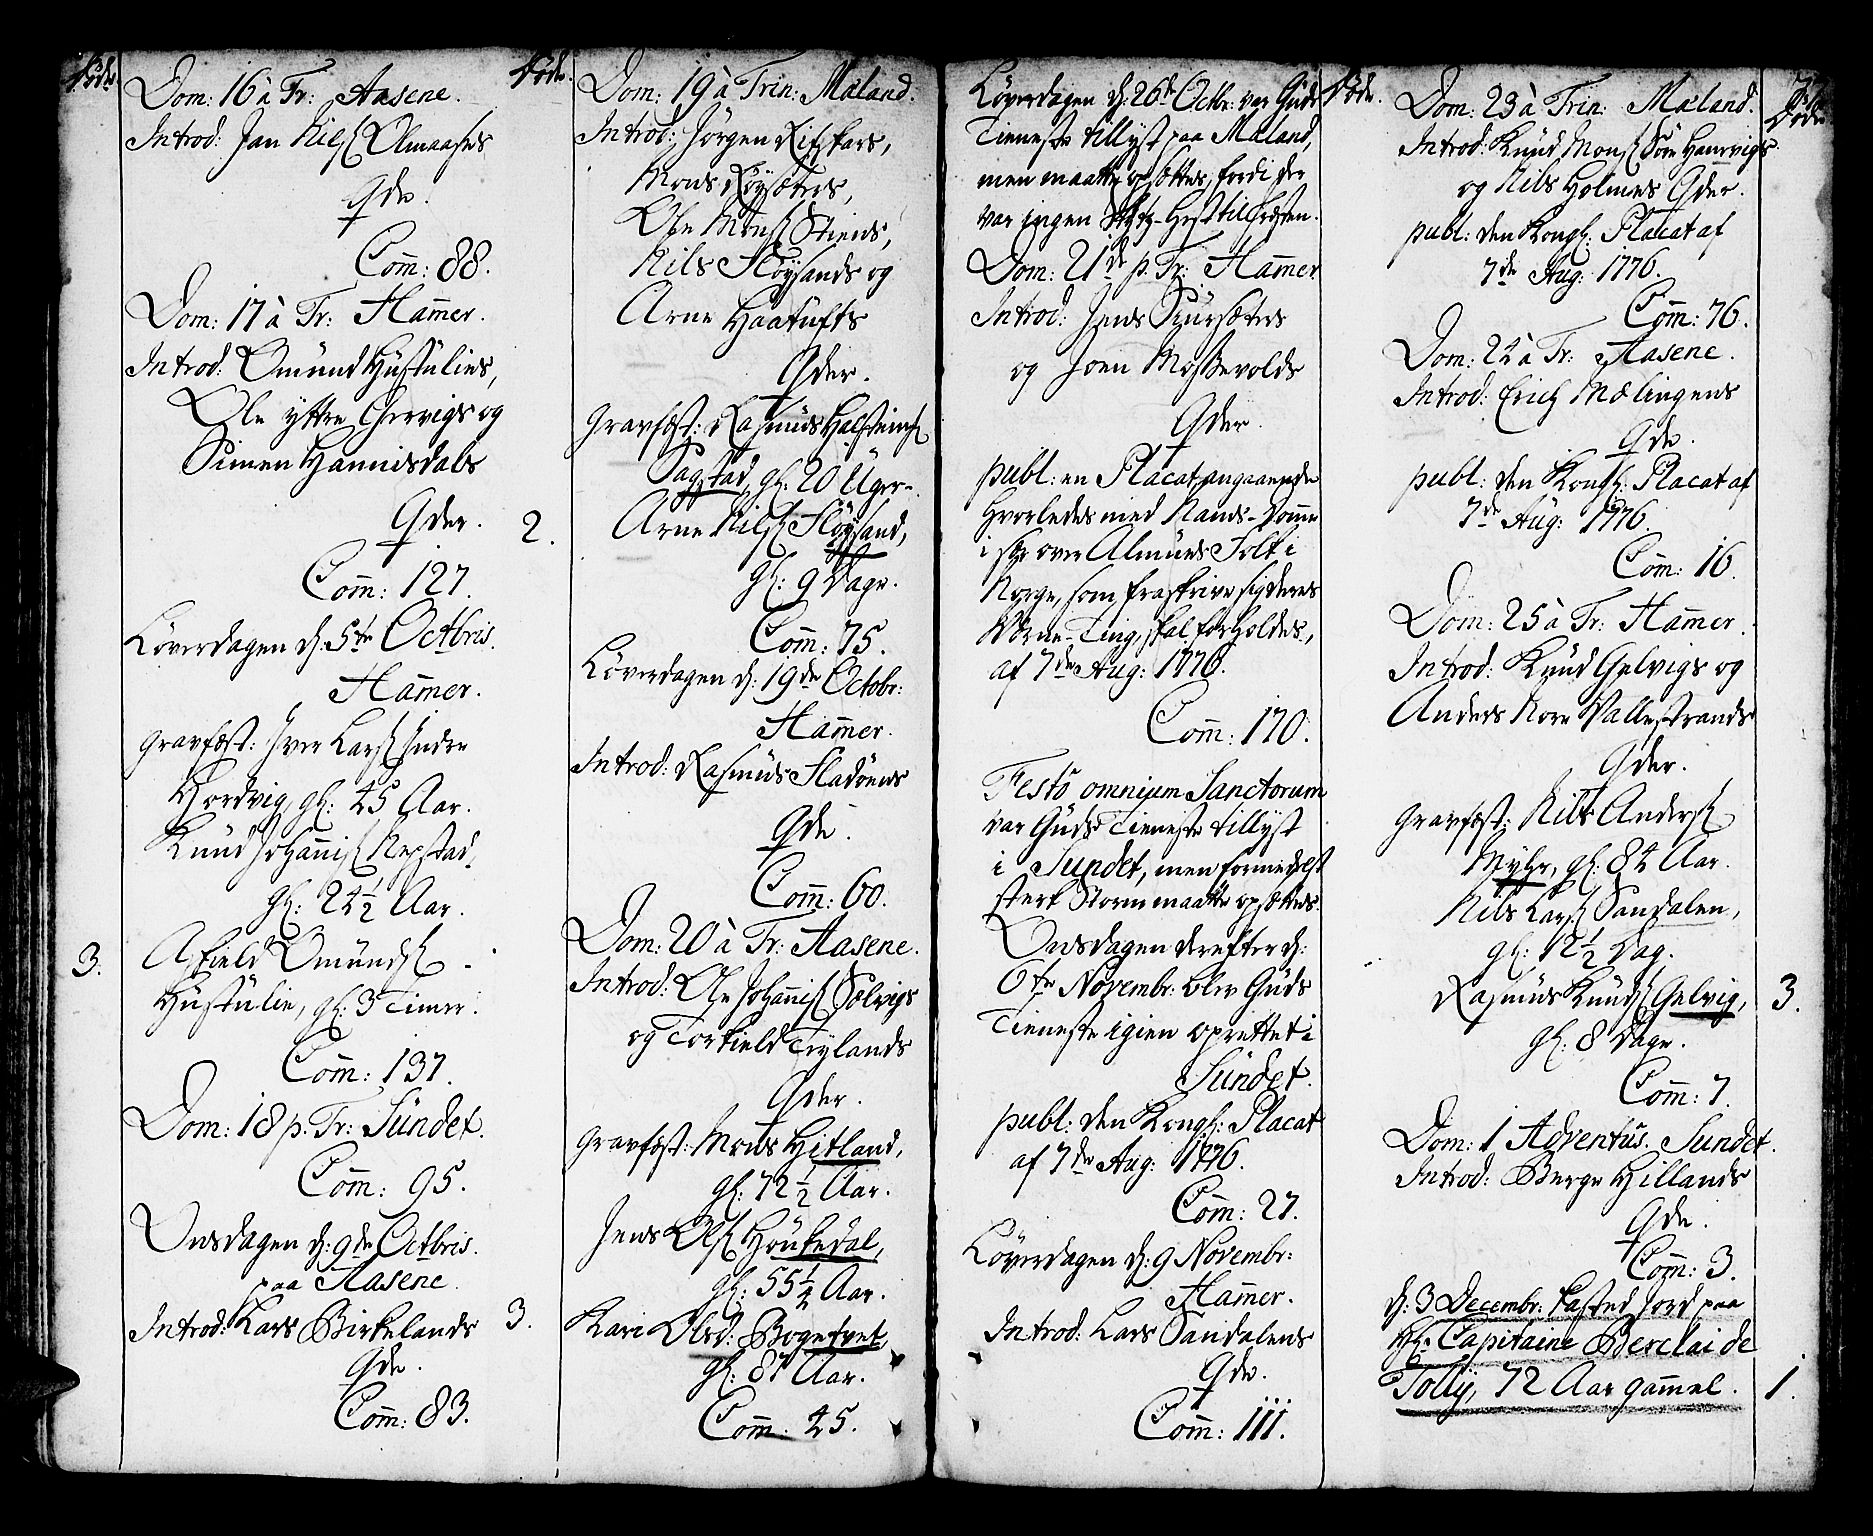 Døde.
Dom: 16 à Fr: Aasene.
Introd: Jan Nils Olmaasns
Qde.
Com̄: 88.
Dom: 17 à Tr: Ham̄er.
Introd: Omünd Hüstülies,
Ole yttre Ghervigs og
Simen Hannisdals
Qder.
Com̄: 127.
Løverdagen d: 5te Octbris.
Ham̄er.
Gravfæst: Iver Lars: Indre
Hordvig, gl: 45 Aar.
Knüd Johannis: Repstad,
gl: 24½ Aar.
3. Omünds:
Hüstülie, gl: 3 Timer.
Com̄: 137.
Dom: 18 p. Tr: Sündet.
Com̄: 95.
Onsdagen d: 9de Octbris.
paa Aasene.
Introd: Lars Birkelands
Qde.
Com̄: 83.
Døde.
Dom: 19 à Trin: Mæland.
Introd: Jørgen Rifskars,
Mons Røysæters,
Ole Mons: Steens,
Nils Fløysands og
Arne Haatüfts
Qder.
Gravfæst: Rasmüs Halsteins:
Sagstad, gl: 20 Uger.
2. Arne Nils: Fløysand,
gl: 9 Dage.
Com̄: 75.
Løverdagen d: 19de Octobr:
Ham̄er.
Introd: Rasmüs Fladøens
Qde.
Com̄: 60.
Dom: 20 à Tr: Aasene.
Introd: Ole Johannis: Sælvigs
og Torkield Tyylands
Qder.
Gravfæst: Mons Hitland,
gl: 72½ Aar.
Jens Ols: Hønkedal,
gl: 55¼ Aar.
3. Kari Olsd: Bogetvet,
gl: 87 Aar.
Com̄: 45.
Løverdagen d: 26de Octbr: var Güds
Tieneste tillyst paa Mæland,
men maatte opsættes, fordi der
var ingen Skytz-Hest til Præsten.
Dom: 21de p. Tr: Ham̄er
Introd: Jens Skürsæters
og Joen Mossevolds
Qder.
publ: en Placat angaaende
Hvorledes med Mands-Domme
i over Almües Folk i
Norge, som fraskrive sig deres
Værne-Ting, skal forholdes,
af 7de Aug: 1776.
Com̄: 170.
Festo omnium Sanctorum
var Güds Tieneste tillyst
i Sündet, men formedelst
sterk Storm maatte opsættes.
Onsdagen derefter d:
6te Novembr: blev Güds
Tieneste igien oprettet i
Sündet.
publ: den Kongl: Placat
af 7de Aug: 1776.
Com̄: 27.
Løverdagen d: 9 Novembr:
Ham̄er.
Introd: Lars Sandalens
Qde.
Com̄: 111.
Døde.
Dom: 23 à Trin: Mæland.
Introd: Knüd Mons: Søre Hamrvigs
og Nils Holmes Qder.
publ: den Kongl: Placat af
7de Aug: 1776.
Com̄: 76.
Dom: 24 à Tr: Aasene.
Introd: Erich Mælingens
Qde.
publ: den Kongl: Placat af
7de Aug: 1776.
Com̄: 16.
Dom: 25 à Tr: Ham̄er.
Introd: Knüd Gelvigs og
Anders Nore Vallestrands
Qder.
Gravfæst: Nils Anders:
Myhr, gl: 84 Aar.
Nils Lars: Sandalen,
gl: 12½ Dag.
Rasmüs Knüds: Gelvig, 3.
gl: 8 Dage.
Com̄: 7.
Dom: 1 Adventus. Sundet.
Introd: Berge Hillands
Qde.
Com̄: 3.
d: 3 Decembr: kasted Jord paa
Hr: Capitaine Berclai de
Tolly, 72 Aar gam̄el. 1.
Døde